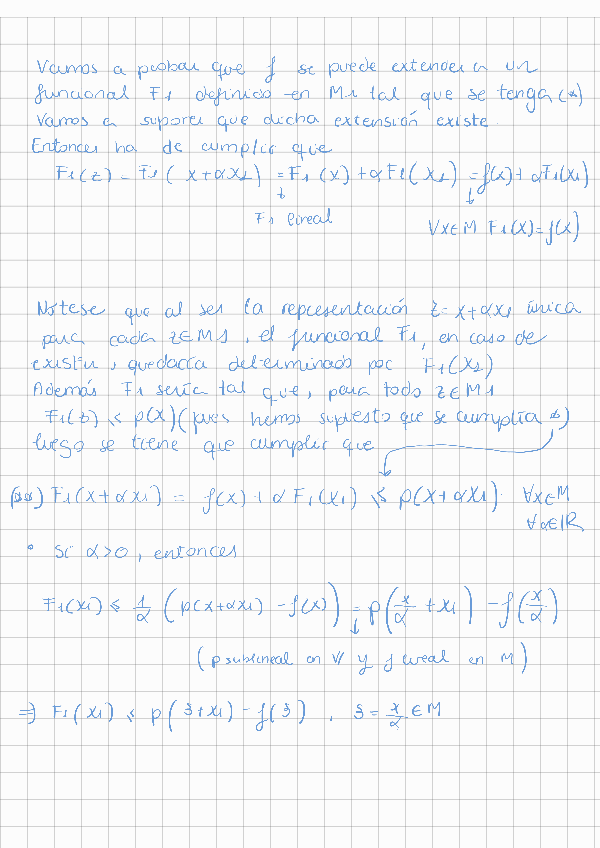 Vamos a probar que f se puede extender a un
funcional F1 definido en M1 tal que se tenga (*)
Vamos a suponer que dicha extensión existe.
Entonces ha de cumplir que
F1(z) = F1(x+αx1) = F1(x) + αF1(x1) = f(x) + αF1(x1)
↓ F1 lineal
↓ ∀x∈M F1(x)=f(x)
Nótese que al ser la representación z=x+αx1 única
para cada z∈M1, el funcional F1, en caso de
existir, quedaría determinado por F1(x1)
Además F1 sería tal que, para todo z∈M1
F1(z) ≤ p(x) (pues hemos supuesto que se cumplía *)
luego se tiene que cumplir que
(**) F1(x+αx1) = f(x) + αF1(x1) ≤ p(x+αx1) ∀x∈M
∀α∈ℝ
• Si α>0, entonces
F1(x1) ≤ 1/α (p(x+αx1) - f(x)) = p(x/α + x1) - f(x/α)
(p sublineal en V y f lineal en M)
⇒) F1(x1) ≤ p(ȝ+x1) - f(ȝ), ȝ = x/α ∈ M